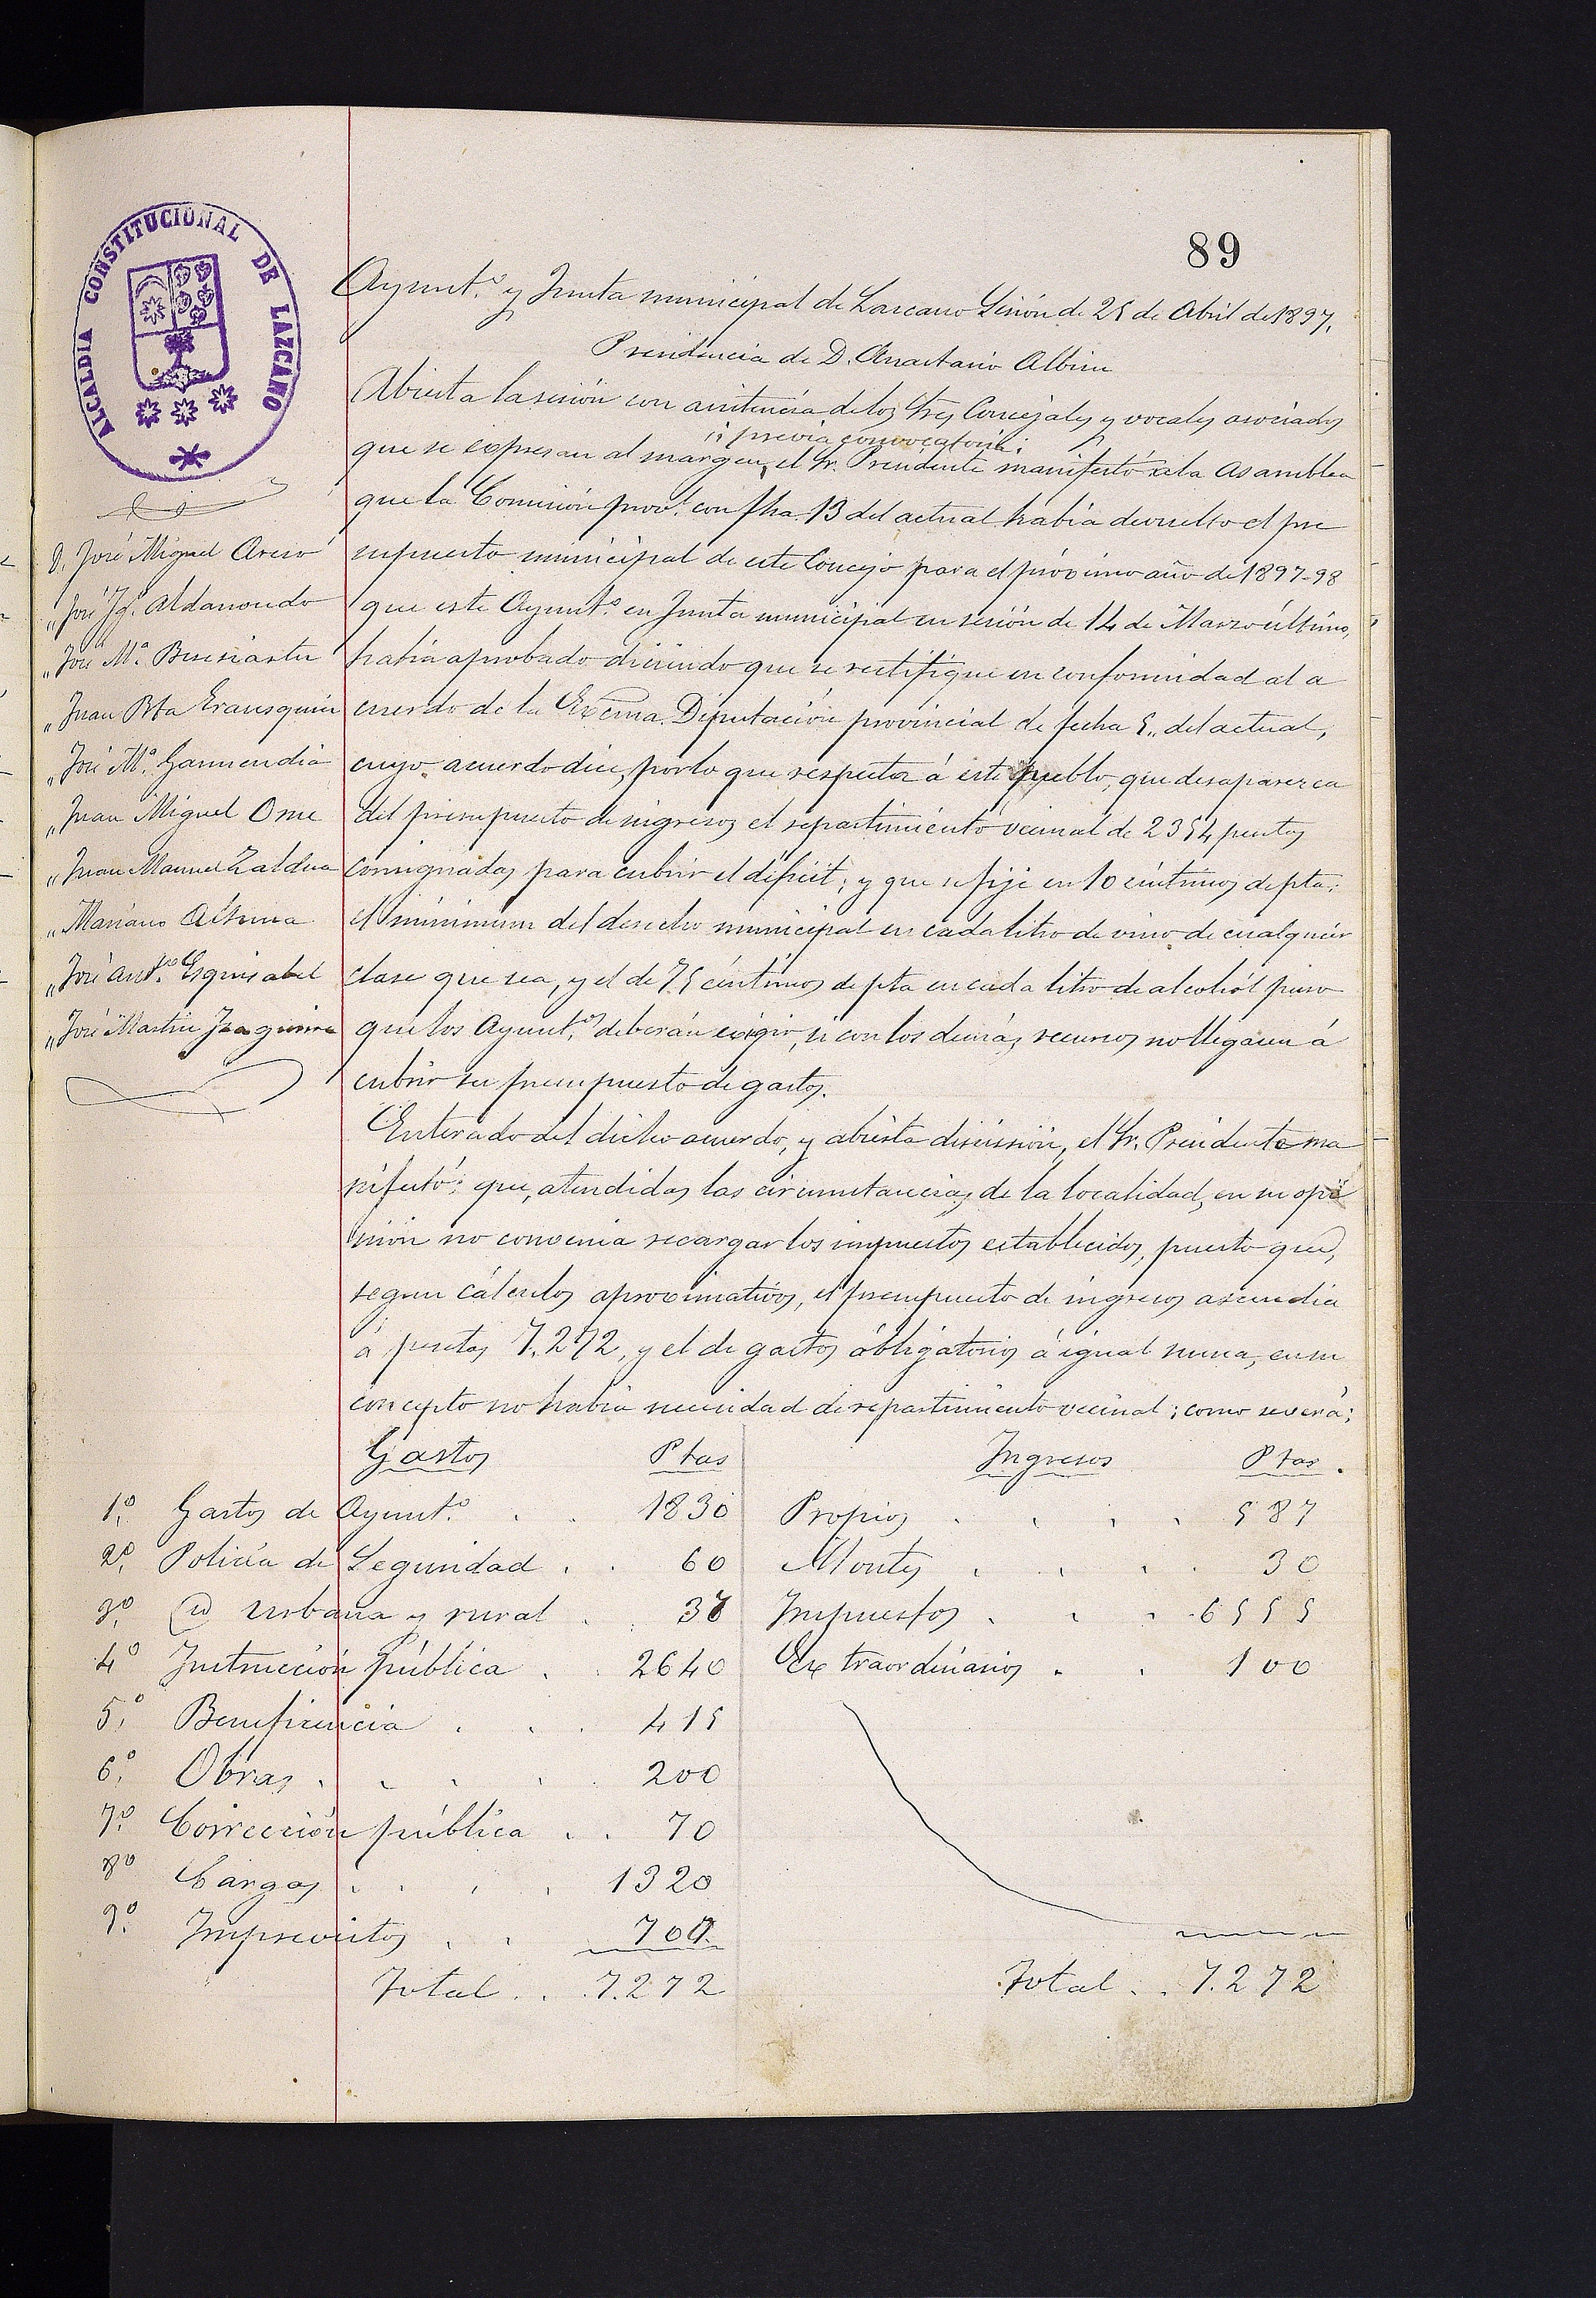 89
ALCALDIA CONSTITUCIONAL DE LAZCANO
Ayunt.º y Junta municipal de Lazcano Sesión de 25 de Abril de 1897.
Presidencia de D. Anastasio Albisu
D. José Miguel
„ José Ig.º Aldanondo
„ José M.ª
„ Juan Bta Erausquin
„ José M.ª Garmendia
„ Juan Miguel
„ Juan Manuel Zaldua
„ Mariano Altuna
„ José Ant.º Esquisabel
„ José Martin
Abierta la sesión con asistencia de los Sres Concejales y vocales asociados
que se expresan al margen, previa convocatoria; el Sr. Presidente manifestó a la Asamblea
que la Comisión prov.l con fha. 13 del actual habia devuelto el pre
supuesto municipal de este Concejo para el próximo año de 1897-98
que este Ayunt.º en Junta municipal en sesión de 14 de Marzo último,
habia aprobado diciendo que se rectifique en conformidad al a
cuerdo de la Excma. Diputación provincial de fecha 5„ del actual,
cuyo acuerdo dice, por lo que respecta á este pueblo, que desaparezca
del presupuesto de ingresos el repartimiento vecinal de 2354 pesetas
consignadas para cubrir el déficit; y que se fije en 10 céntimos de pta.
el minimum del derecho municipal en cada litro de vino de cualquier
clase que sea, y el de 75 céntimos de pta en cada litro de alcohól puro
que los Ayunt.os deberán exigir, si con los demás recursos no llegasen á
cubrir su presupuesto de gastos.
Enterado del dicho acuerdo, y abierta discusión, el Sr. Presidente ma
nifestó: que, atendidas las circunstancias de la localidad, en su opi
nión no convenia recargar los impuestos establecidos, puesto que,
segun cálculos aproximativos, el presupuesto de ingresos ascendia
á pesetas 7.272, y el de gastos óbligatorios á igual suma, en su
concepto no habia necesidad de repartimiento vecinal; como se verá;
Gastos Ptas Ingresos Ptas.
1.º Gastos de Ayunt.º . . 1830 Propios . . . . 587
2.º Policía de Seguridad . . 60 Montes . . . . 30
3.º Id urbana y rural . . 37 Impuestos . . . 6555
4.º Instrucción pública . . 2640 Extraordinarios . . 100
5.º Beneficencia . . . 415
6.º Obras . . . . . 200
7.º Corrección pública . . 70
8.º Cargas . . . . 1320
9.º Imprevistos . . 700.
Total . . 7.272 Total . . 7.272